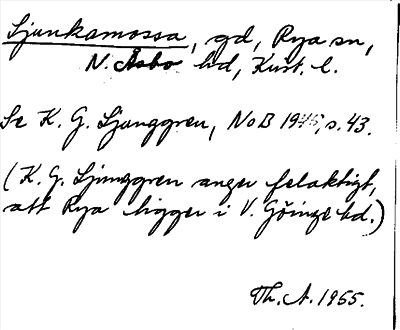 Ljunkamossa, gd, Rya sn,
N. Åsbo hd, Krist. l.
Se K. G. Ljunggren, NoB 1945, s. 43.
(K. G. Ljunggren anger felaktigt,
att Rya ligger i V. Göinge hd.)
Th. A. 1965.